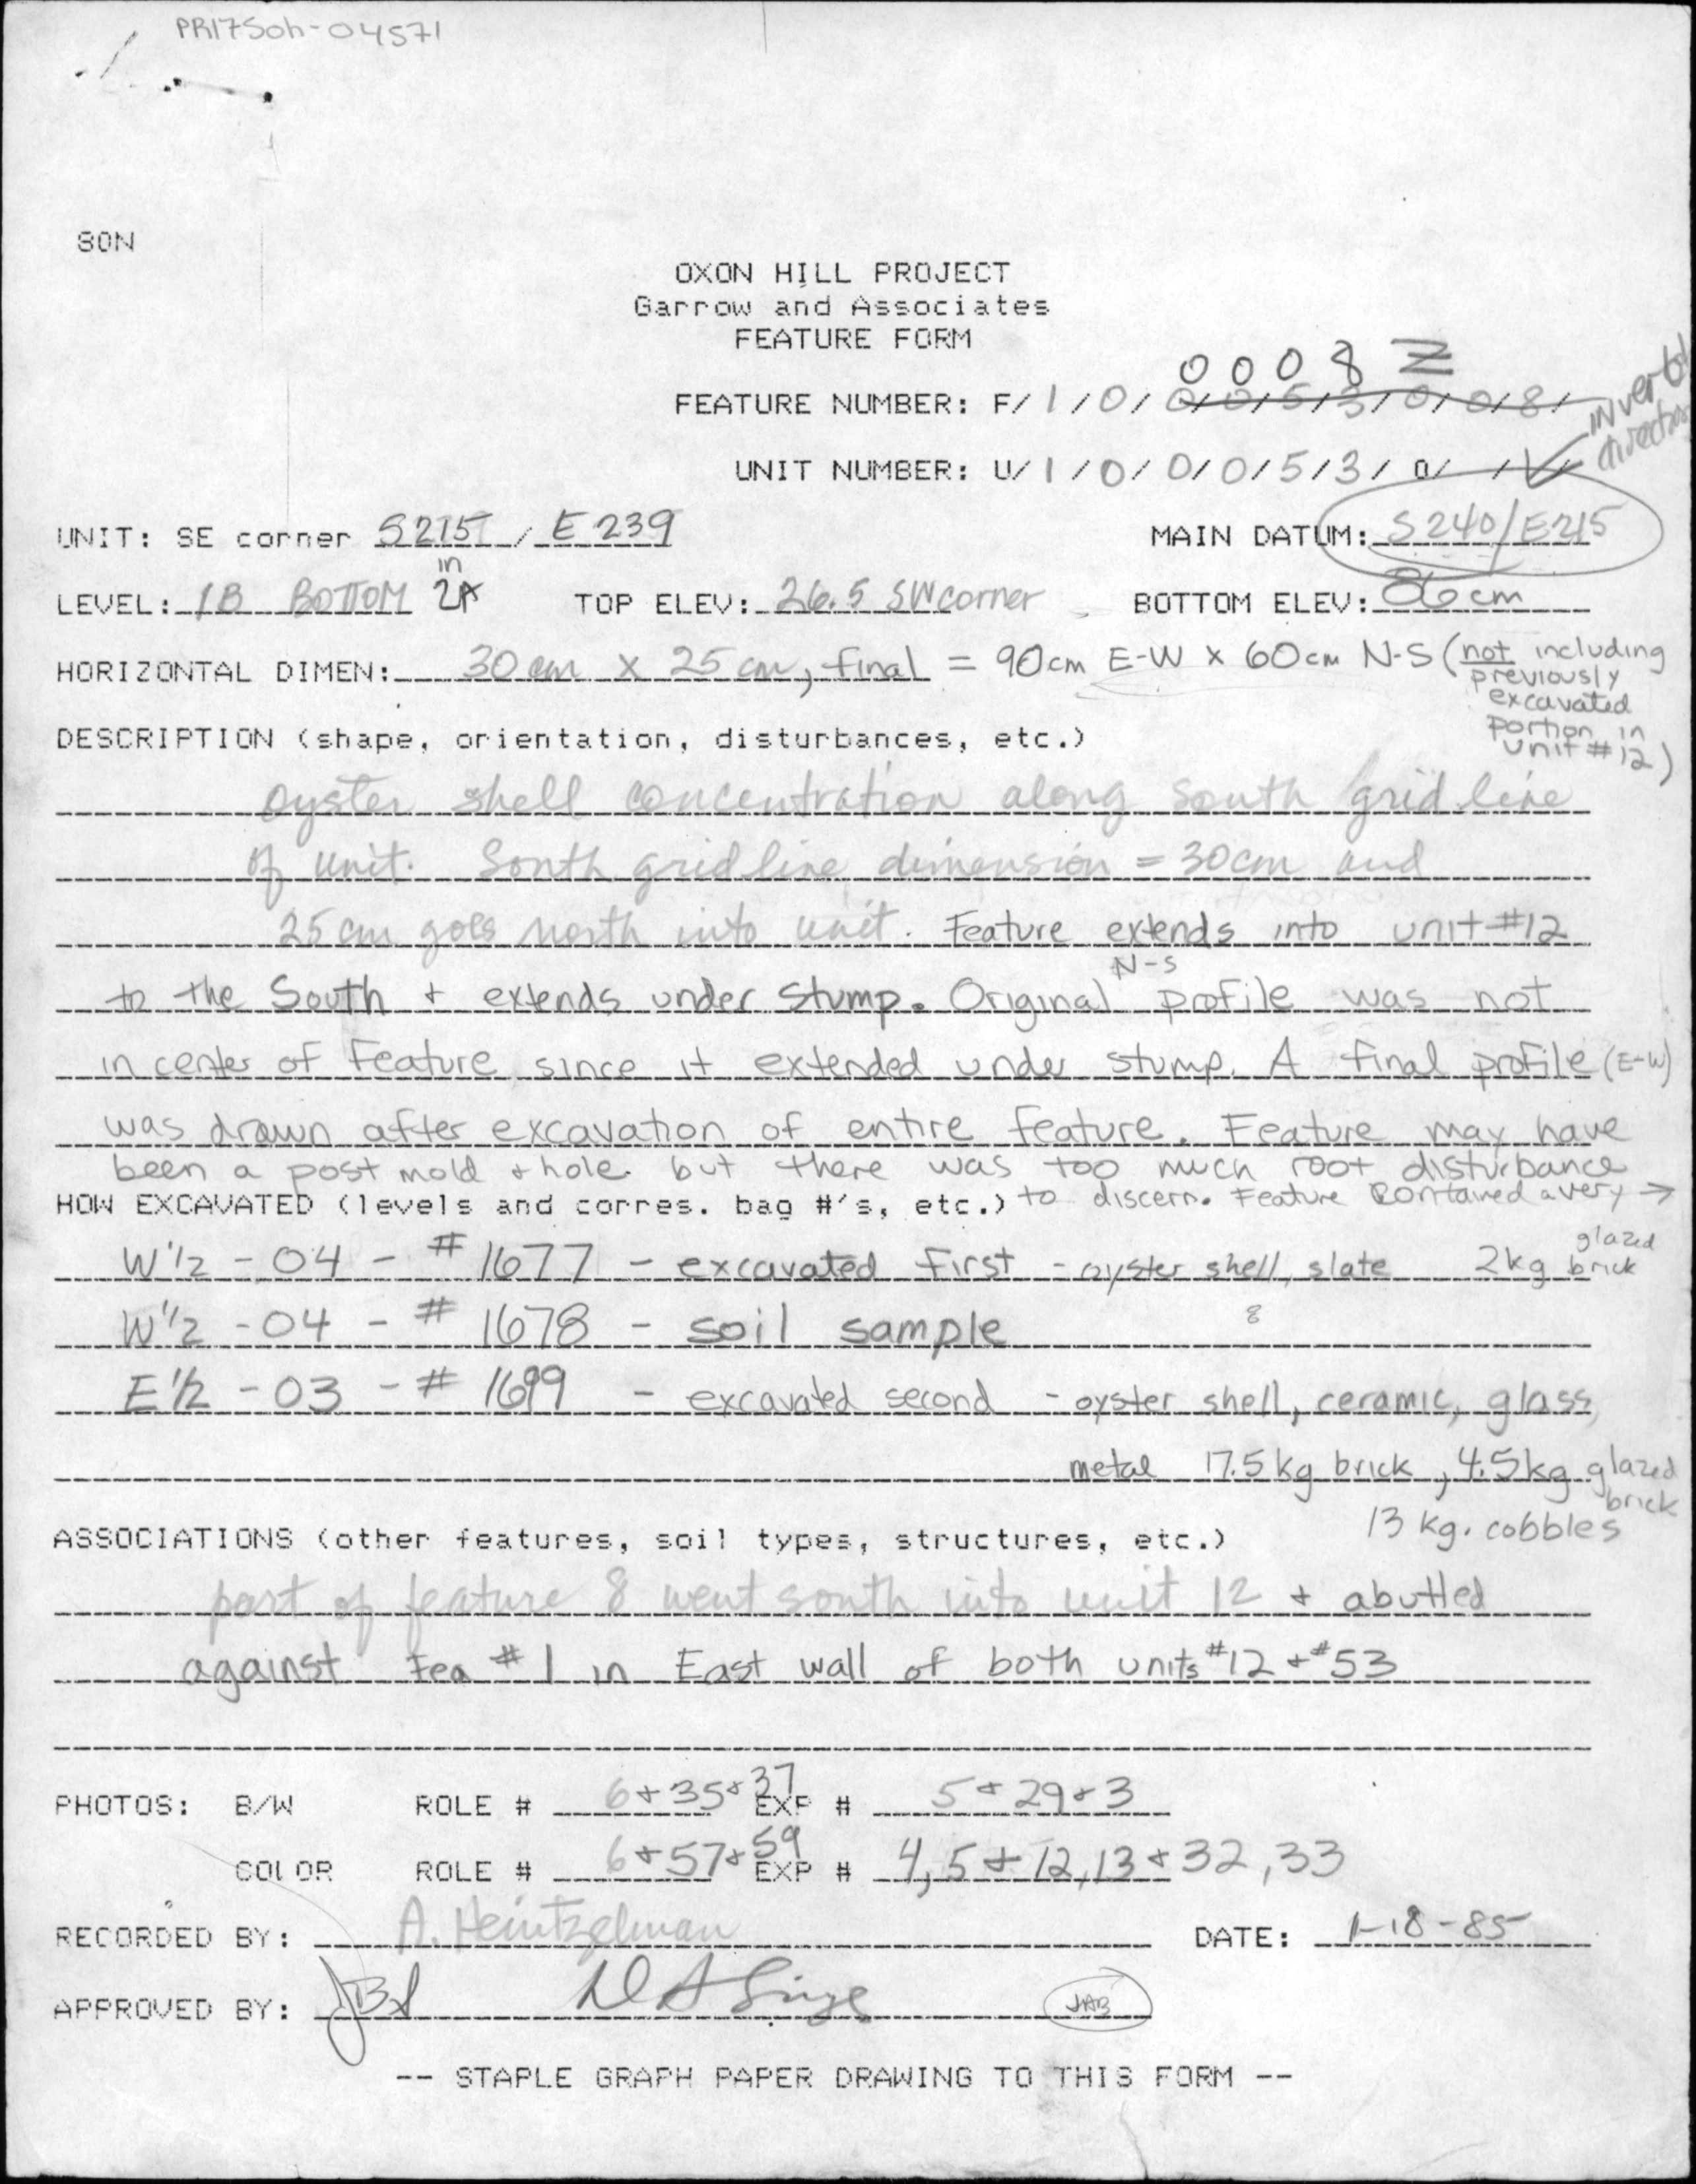 PR175oh-04571
SON
OXON HILL PROJECT
Garrow and Associates
FEATURE FORM
0 0 0 8 Z
FEATURE NUMBER: F/1/0/0/0/5/3/0/0/8/
inverted direction
UNIT NUMBER: U/1/0/0/0/5/3/0/ / /
UNIT: SE corner S215 / E239 MAIN DATUM: S240/E215
LEVEL: 1B BOTTOM in 2A TOP ELEV: 26.5 SW corner BOTTOM ELEV: 86cm
HORIZONTAL DIMEN: 30cm x 25cm, final = 90cm E-W x 60cm N-S (not including
previously
excavated
portion in
unit #12)
DESCRIPTION (shape, orientation, disturbances, etc.)
oyster shell concentration along south grid line
of unit. South grid line dimension = 30cm and
25cm goes north into unit. Feature extends into unit #12
to the South + extends under stump. Original N-S profile was not
in center of Feature since it extended under stump. A final profile (E-W)
was drawn after excavation of entire feature. Feature may have
been a post mold + hole but there was too much root disturbance
HOW EXCAVATED (levels and corres. bag #'s, etc.) to discern. Feature contained a very →
W 1/2 - 04 - # 1677 - excavated first - oyster shell, slate 2kg glazed brick
W 1/2 - 04 - # 1678 - soil sample 8
E 1/2 - 03 - # 1699 - excavated second - oyster shell, ceramic, glass,
metal 17.5kg brick, 4.5kg glazed brick
13 kg. cobbles
ASSOCIATIONS (other features, soil types, structures, etc.)
part of feature 8 went south into unit 12 + abutted
against Fea #1 in East wall of both units #12 + #53
PHOTOS: B/W ROLE # 6+35+37 EXP # 5+29+3
COLOR ROLE # 6+57+59 EXP # 4,5+12,13+32,33
RECORDED BY: A. Heintzelman DATE: 1-18-85
APPROVED BY: JAB
-- STAPLE GRAPH PAPER DRAWING TO THIS FORM --